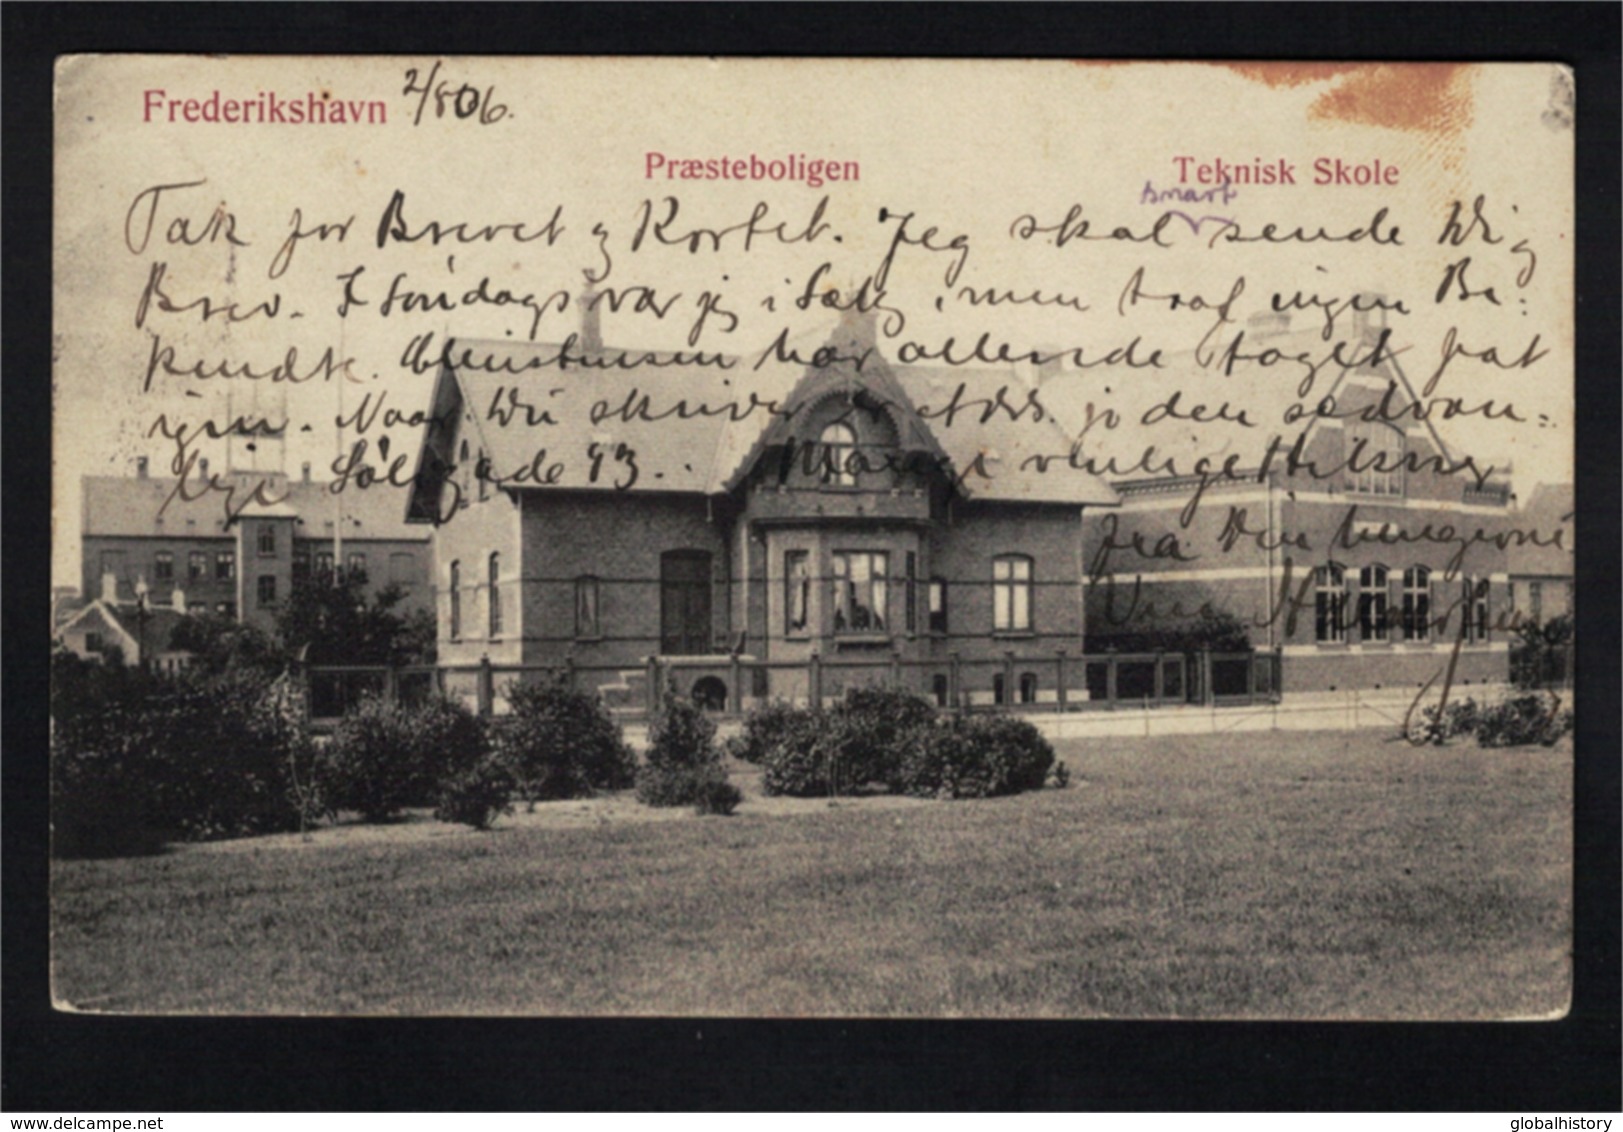 Frederikshavn 2/8 06.
Præsteboligen
Teknisk Skole
snart
Tak for Brevet og Kortet. Jeg skal sende Dig
Brev. I Søndags var jeg i Sæby, men traf ingen Be-
kendte. Christensen har allerede taget fat
igen. Naar Du skriver er Adrs. jo den sædvan-
lige Sølvgade 93. Mange venligste Hilsner
fra Din hengivne